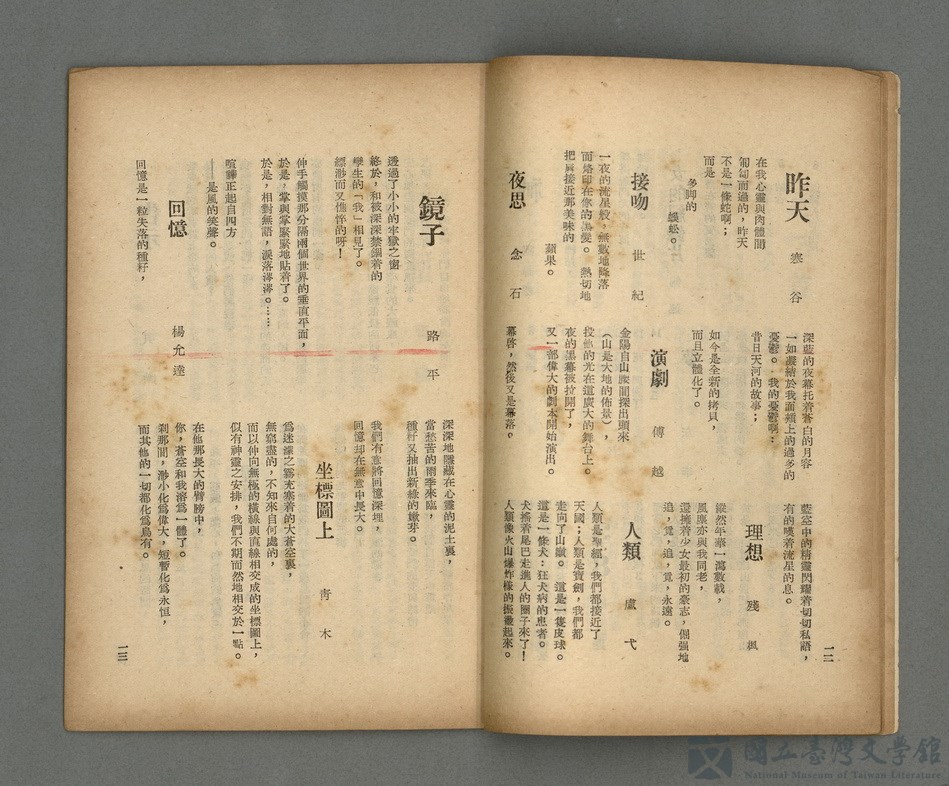 昨天
寒谷
在我心靈與肉體間
匍匐而過的，昨天
不是一條蛇啊；
而是
多脚的
蜈蚣。
接吻
世紀
一夜的流星般，無數地降落
而烙印在你的黑髮。熱切地
把唇接近那美味的
蘋果。
夜思
念石
深藍的夜幕托着蒼白的月容
一如凝結於我面頰上的過多的
憂鬱。我的憂鬱啊：
昔日天河的故事；
如今是全新的拷貝，
而且立體化了。
演劇
傅越
金陽自山腰間探出頭來
（山是大地的佈景），
投他的光在這廣大的舞台上。
夜的黑幕被拉開了，
又一部偉大的劇本開始演出。
幕啓，然後又是幕落。
藍空中的精靈閃耀着切切私語，
有的嘆着流星的息。
理想
殘楓
縱然年華一瀉數載，
風塵亦與我同老，
還擁着少女最初的豪志，倔强地
追，覓，追，覓，永遠。
人類
盧弋
人類是聖經，我們都接近了
天國；人類是寶劍，我們都
走向了山巔。這是一隻皮球。
這是一條犬：狂犬病的患者。
犬搖着尾巴走進人的圈子來了！
人類像火山爆炸樣的振盪起來。
一二
鏡子
路平
透過了小小的牢獄之窗
終於，和被深深禁錮着的
孿生的「我」相見了。
縹渺而又憔悴的呀！
伸手觸摸那分隔兩個世界的垂直平面，
於是，掌與掌緊緊地貼着了。
於是，相對無語，淚落涔涔。……
喧譁正起自四方
——是風的笑聲。
回憶
楊允達
回憶是一粒失落的種籽，
深深地隱藏在心靈的泥土裏，
當愁苦的雨季來臨，
種籽又抽出新綠的嫩芽。
我們有意將回憶深埋，
回憶却在無意中長大。
坐標圖上
青木
爲迷濛之霧充塞着的大蒼空裏，
無窮盡的，不知來自何處的，
而以伸向無極的橫線與直線相交成的坐標圖上，
似有神靈之安排，我們不期而然地相交於一點。
在他那長大的臂膀中，
你，蒼空和我溶爲一體了。
刹那間，渺小化爲偉大，短暫化爲永恒，
而其他的一切都化爲烏有。
一三
國立臺灣文學館
National Museum of Taiwan Literature